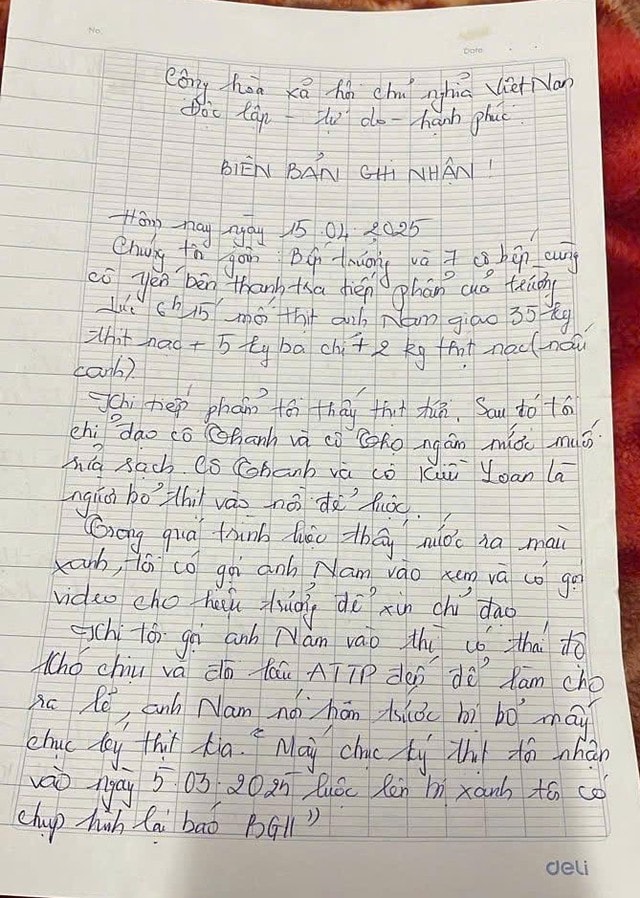 No
Date
Cộng hòa xã hội chủ nghĩa Việt Nam
Độc lập - tự do - hạnh phúc.
BIÊN BẢN GHI NHẬN!
Hôm nay ngày 15.04.2025
Chúng tôi gồm: Bếp trưởng và 7 cô bếp cùng
cô Yến bên thanh tra tiếp phẩm của trường
Lúc 6h15' mối thịt anh Nam giao 35 kg
thịt nạc + 5 ky ba chỉ + 2 kg thịt nạc (nấu
canh).
Khi tiếp phẩm tôi thấy thịt tươi. Sau đó tôi
chỉ đạo cô Thanh và cô Thọ ngâm nước muối
rửa sạch. Cô Thanh và cô Kiều Loan là
người bỏ thịt vào nồi để luộc.
Trong quá trình luộc thấy nước ra màu
xanh, tôi có gọi anh Nam vào xem và có gọi
video cho hiệu trưởng để xin chỉ đạo
Khi tôi gọi anh Nam vào thì có thái độ
khó chịu và đòi lấy ATTP đến để làm cho
ra lẽ, anh Nam nói hôm trước bị bỏ mấy
chục ký thịt kia. "Mấy chục ký thịt tôi nhận
vào ngày 5.03.2025 luộc lên bị xanh tôi có
chụp hình lại báo BGH"
deli